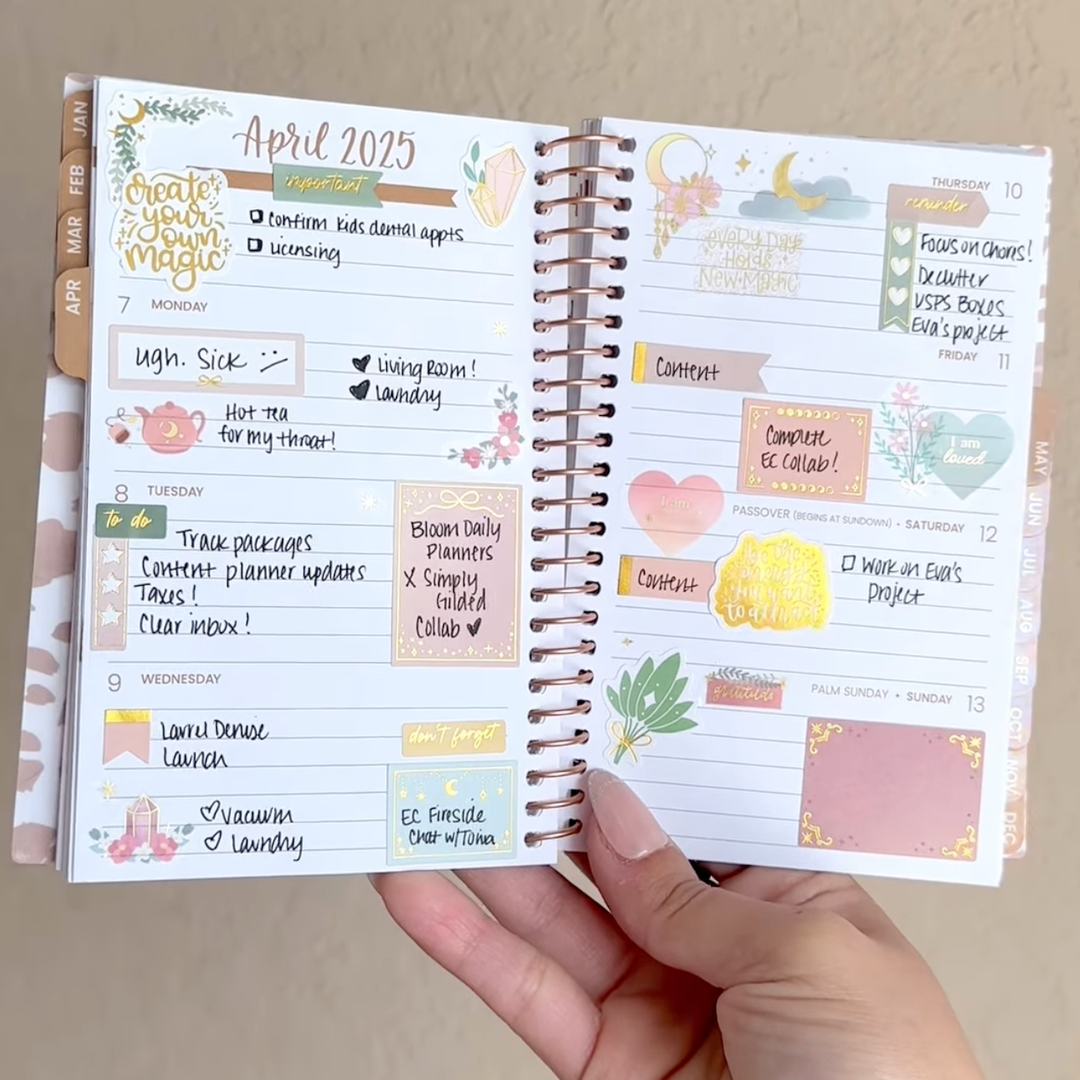 JAN
FEB
MAR
APR
April 2025
important
create
your
own
magic
Confirm kids dental appts
Licensing
7 MONDAY
Ugh. Sick
Living Room!
Laundry
Hot tea
for my throat!
8 TUESDAY
to do
Track packages
Content planner updates
Taxes!
Clear inbox!
Bloom Daily
Planners
X Simply
Gilded
Collab
9 WEDNESDAY
Laurel Denise
Launch
don't forget
Vacuum
Laundry
EC Fireside
Chat w/Tonia
THURSDAY 10
reminder
every day
Holds
New Magic
Focus on chores!
Declutter
USPS Boxes
Eva's project
FRIDAY 11
Content
Complete
EC Collab!
I am
loved
I am
PASSOVER (BEGINS AT SUNDOWN) • SATURDAY 12
Content
you want
to attract
Work on Eva's
Project
PALM SUNDAY • SUNDAY 13
gratitude
MAY
JUN
JUL
AUG
SEP
OCT
NOV
DEC